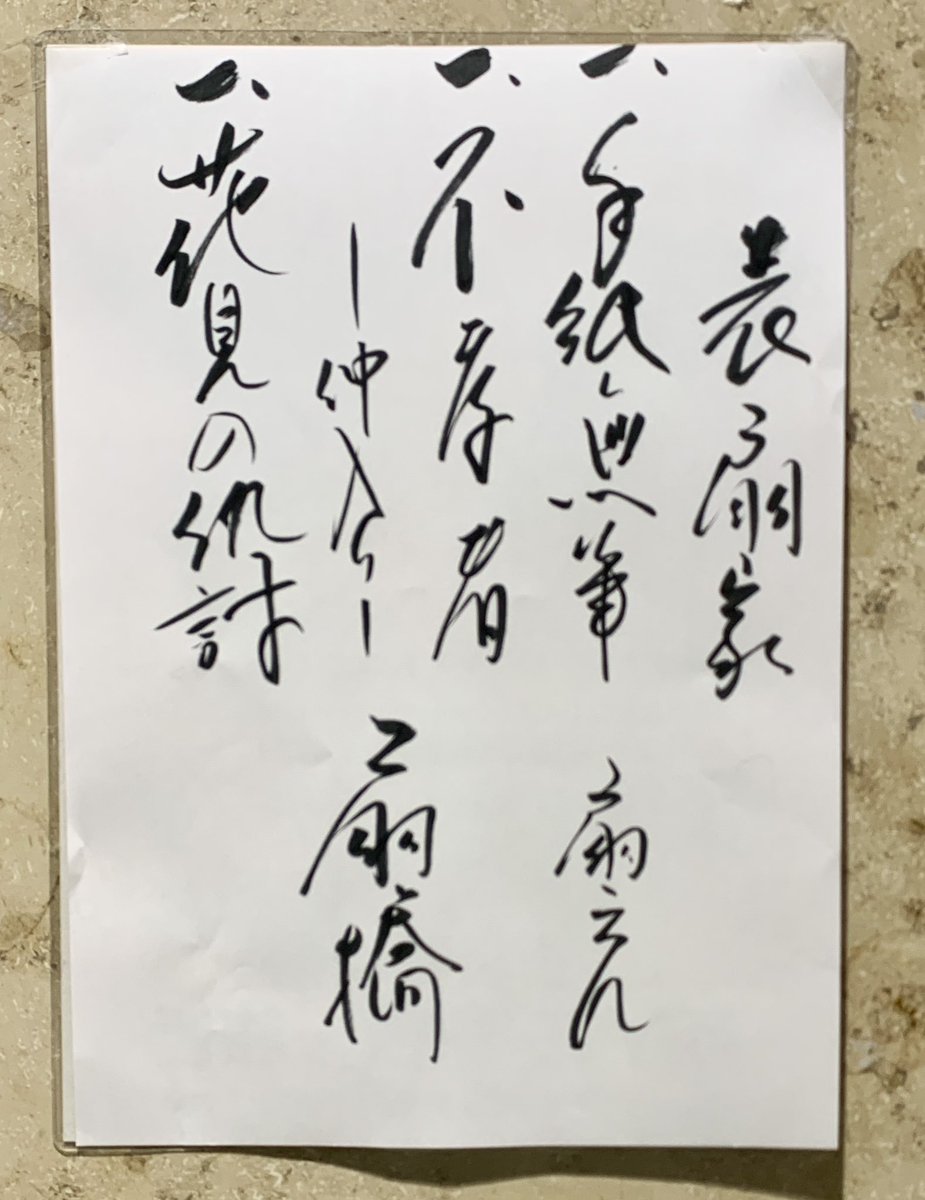 扇家
一、手紙無筆 扇えん
一、不孝者 扇橋
―仲入り―
一、花見の仇討